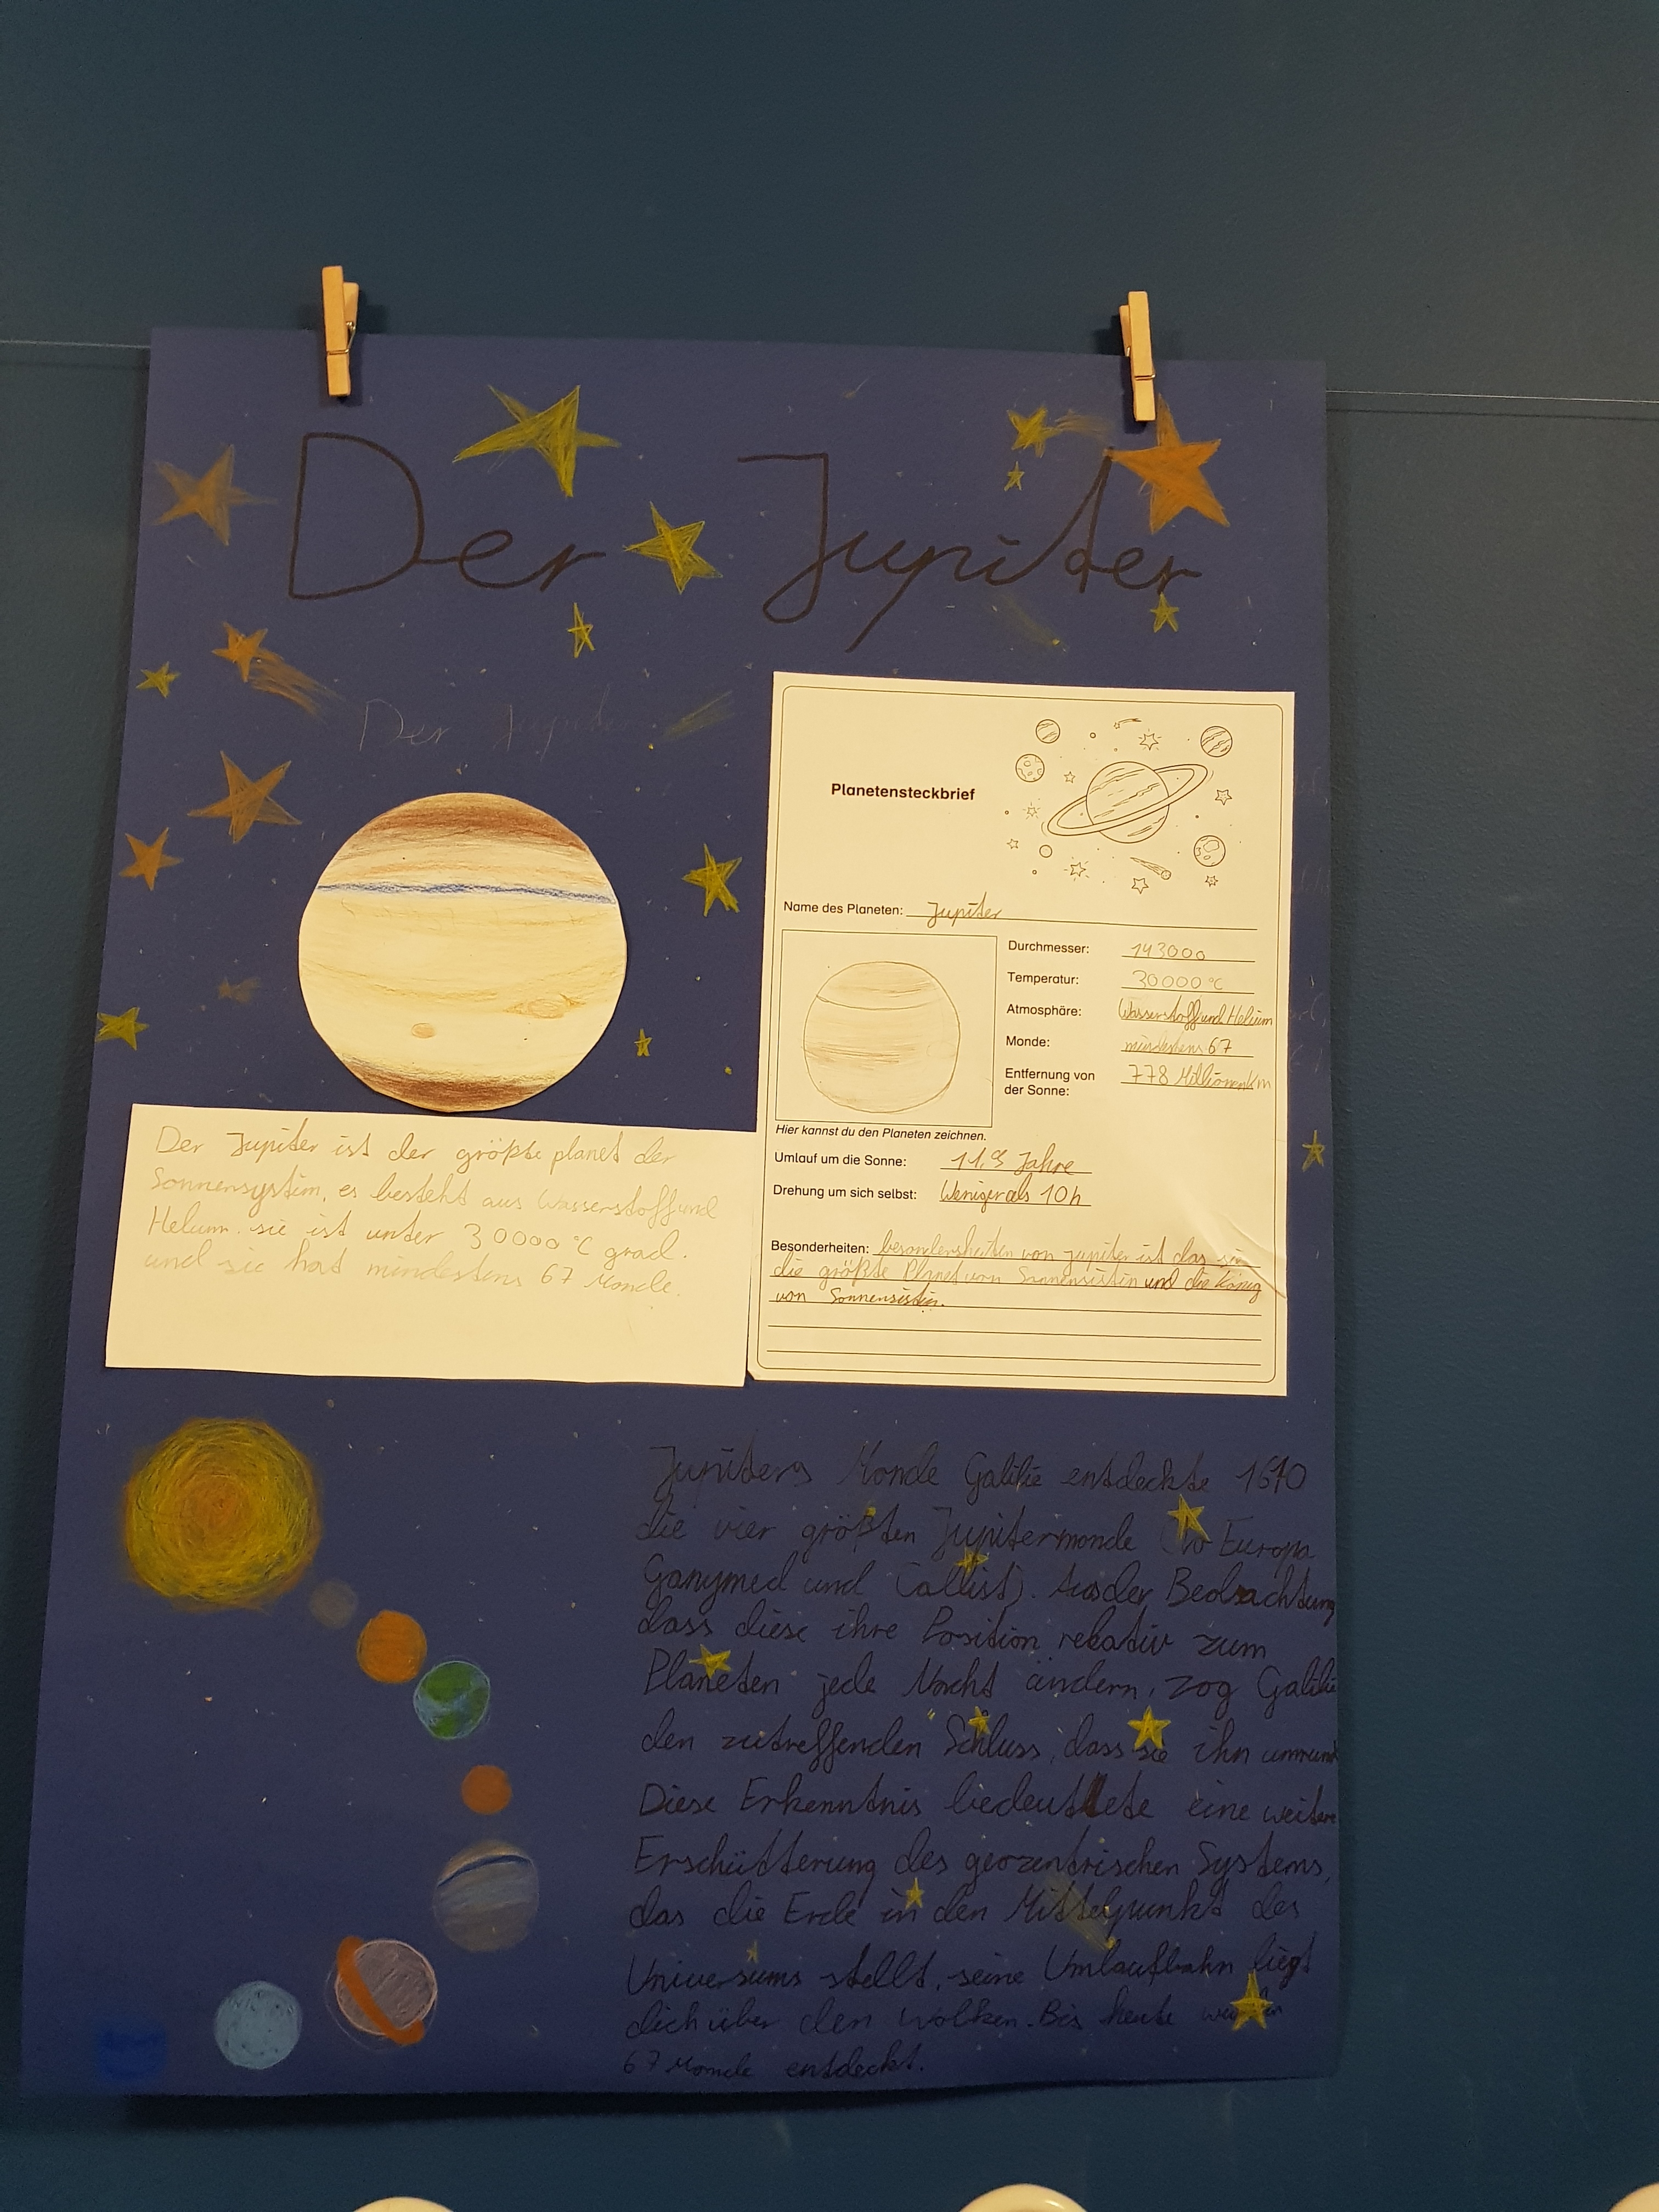 Der Jupiter
Der Jupiter
Planetensteckbrief
Name des Planeten: Jupiter
Durchmesser: 143000
Temperatur: 30000 °C
Atmosphäre: Wasserstoff und Helium
Monde: mindestens 67
Entfernung von der Sonne: 778 Millionen Km
Hier kannst du den Planeten zeichnen.
Umlauf um die Sonne: 11,9 Jahre
Drehung um sich selbst: Weniger als 10 h
Besonderheiten: besondersheiten von jupiter ist das sie
die größte Planet von Sonnensistin und die König
von Sonnensistin.
Der Jupiter ist der größte planet der
Sonnensystim, es besteht aus Wasserstoff und
Helium. sie ist unter 30000 °C grad.
und sie hat mindestens 67 Monde.
Jupiters Monde Galilie entdeckte 1610
die vier größten Jupitermonde Europa
Ganymed und Callist). Aus der Beobachtung
dass diese ihre Position relativ zum
Planeten jede Nacht ändern, zog Galilie
den zutreffenden Schluss, dass sie ihn umrund
Diese Erkenntnis bedeutete eine weitere
Erschütterung des geozentrischen Systems,
das die Erde in den Mittelpunkt des
Universums stellt. seine Umlaufbahn liegt
dich über den Wolken. Bis heute
67 Monde entdeckt.